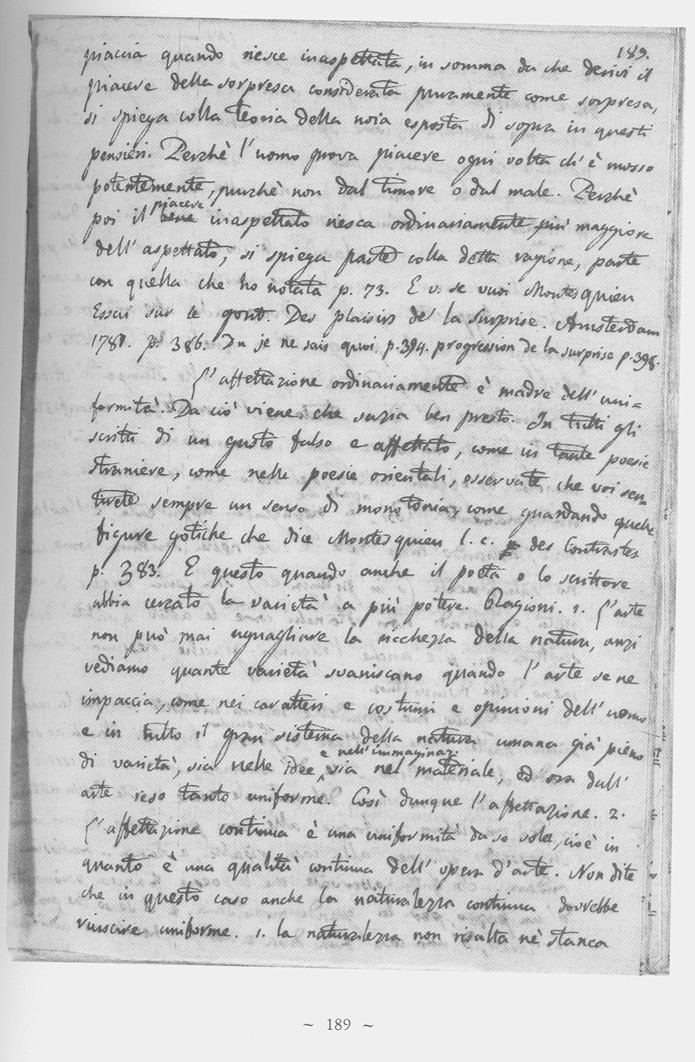 189.
piaccia quando riesce inaspettata, in somma da che derivi il
piacere della sorpresa considerata puramente come sorpresa,
si spiega colla teoria della noia esposta di sopra in questi
pensieri. Perchè l'uomo prova piacere ogni volta ch'è mosso
potentemente, purchè non dal timore o dal male. Perchè
piacere
poi il bene inaspettato riesca ordinariamente più maggiore
dell'aspettato, si spiega parte colla detta ragione, parte
con quella che ho notata p. 73. E v. se vuoi Montesquieu
Essai sur le gout. Des plaisirs de la surprise. Amsterdam
1781. p. 386. Du je ne sais quoi. p. 394. progression de la surprise p. 398.
L'affettazione ordinariamente è madre dell'uni=
formità. Da ciò viene che sazia ben presto. In tutti gli
scritti di un gusto falso e affettato, come in tante poesie
straniere, come nelle poesie orientali, osservate che voi sen=
tirete sempre un senso di monotonia, come guardando quelle
figure gotiche che dice Montesquieu l. c. des Contrastes
p. 383. E questo quando anche il poeta o lo scrittore
abbia cercato la varietà a più potere. Ragioni. 1. L'arte
non può mai uguagliare la ricchezza della natura, anzi
vediamo quante varietà svaniscano quando l'arte se ne
impaccia, come nei caratteri e costumi e opinioni dell'uomo
e in tutto il gran sistema della natura umana già pieno
e nell'immaginaz.
di varietà, sia nelle idee, sia nel materiale, ed ora dall'
arte reso tanto uniforme. Così dunque l'affettazione. 2.
L'affettazione continua è una uniformità da se sola, cioè in
quanto è una qualità continua dell'opera d'arte. Non dite
che in questo caso anche la naturalezza continua dovrebbe
riuscire uniforme. 1. la naturalezza non risalta nè stanca
~ 189 ~